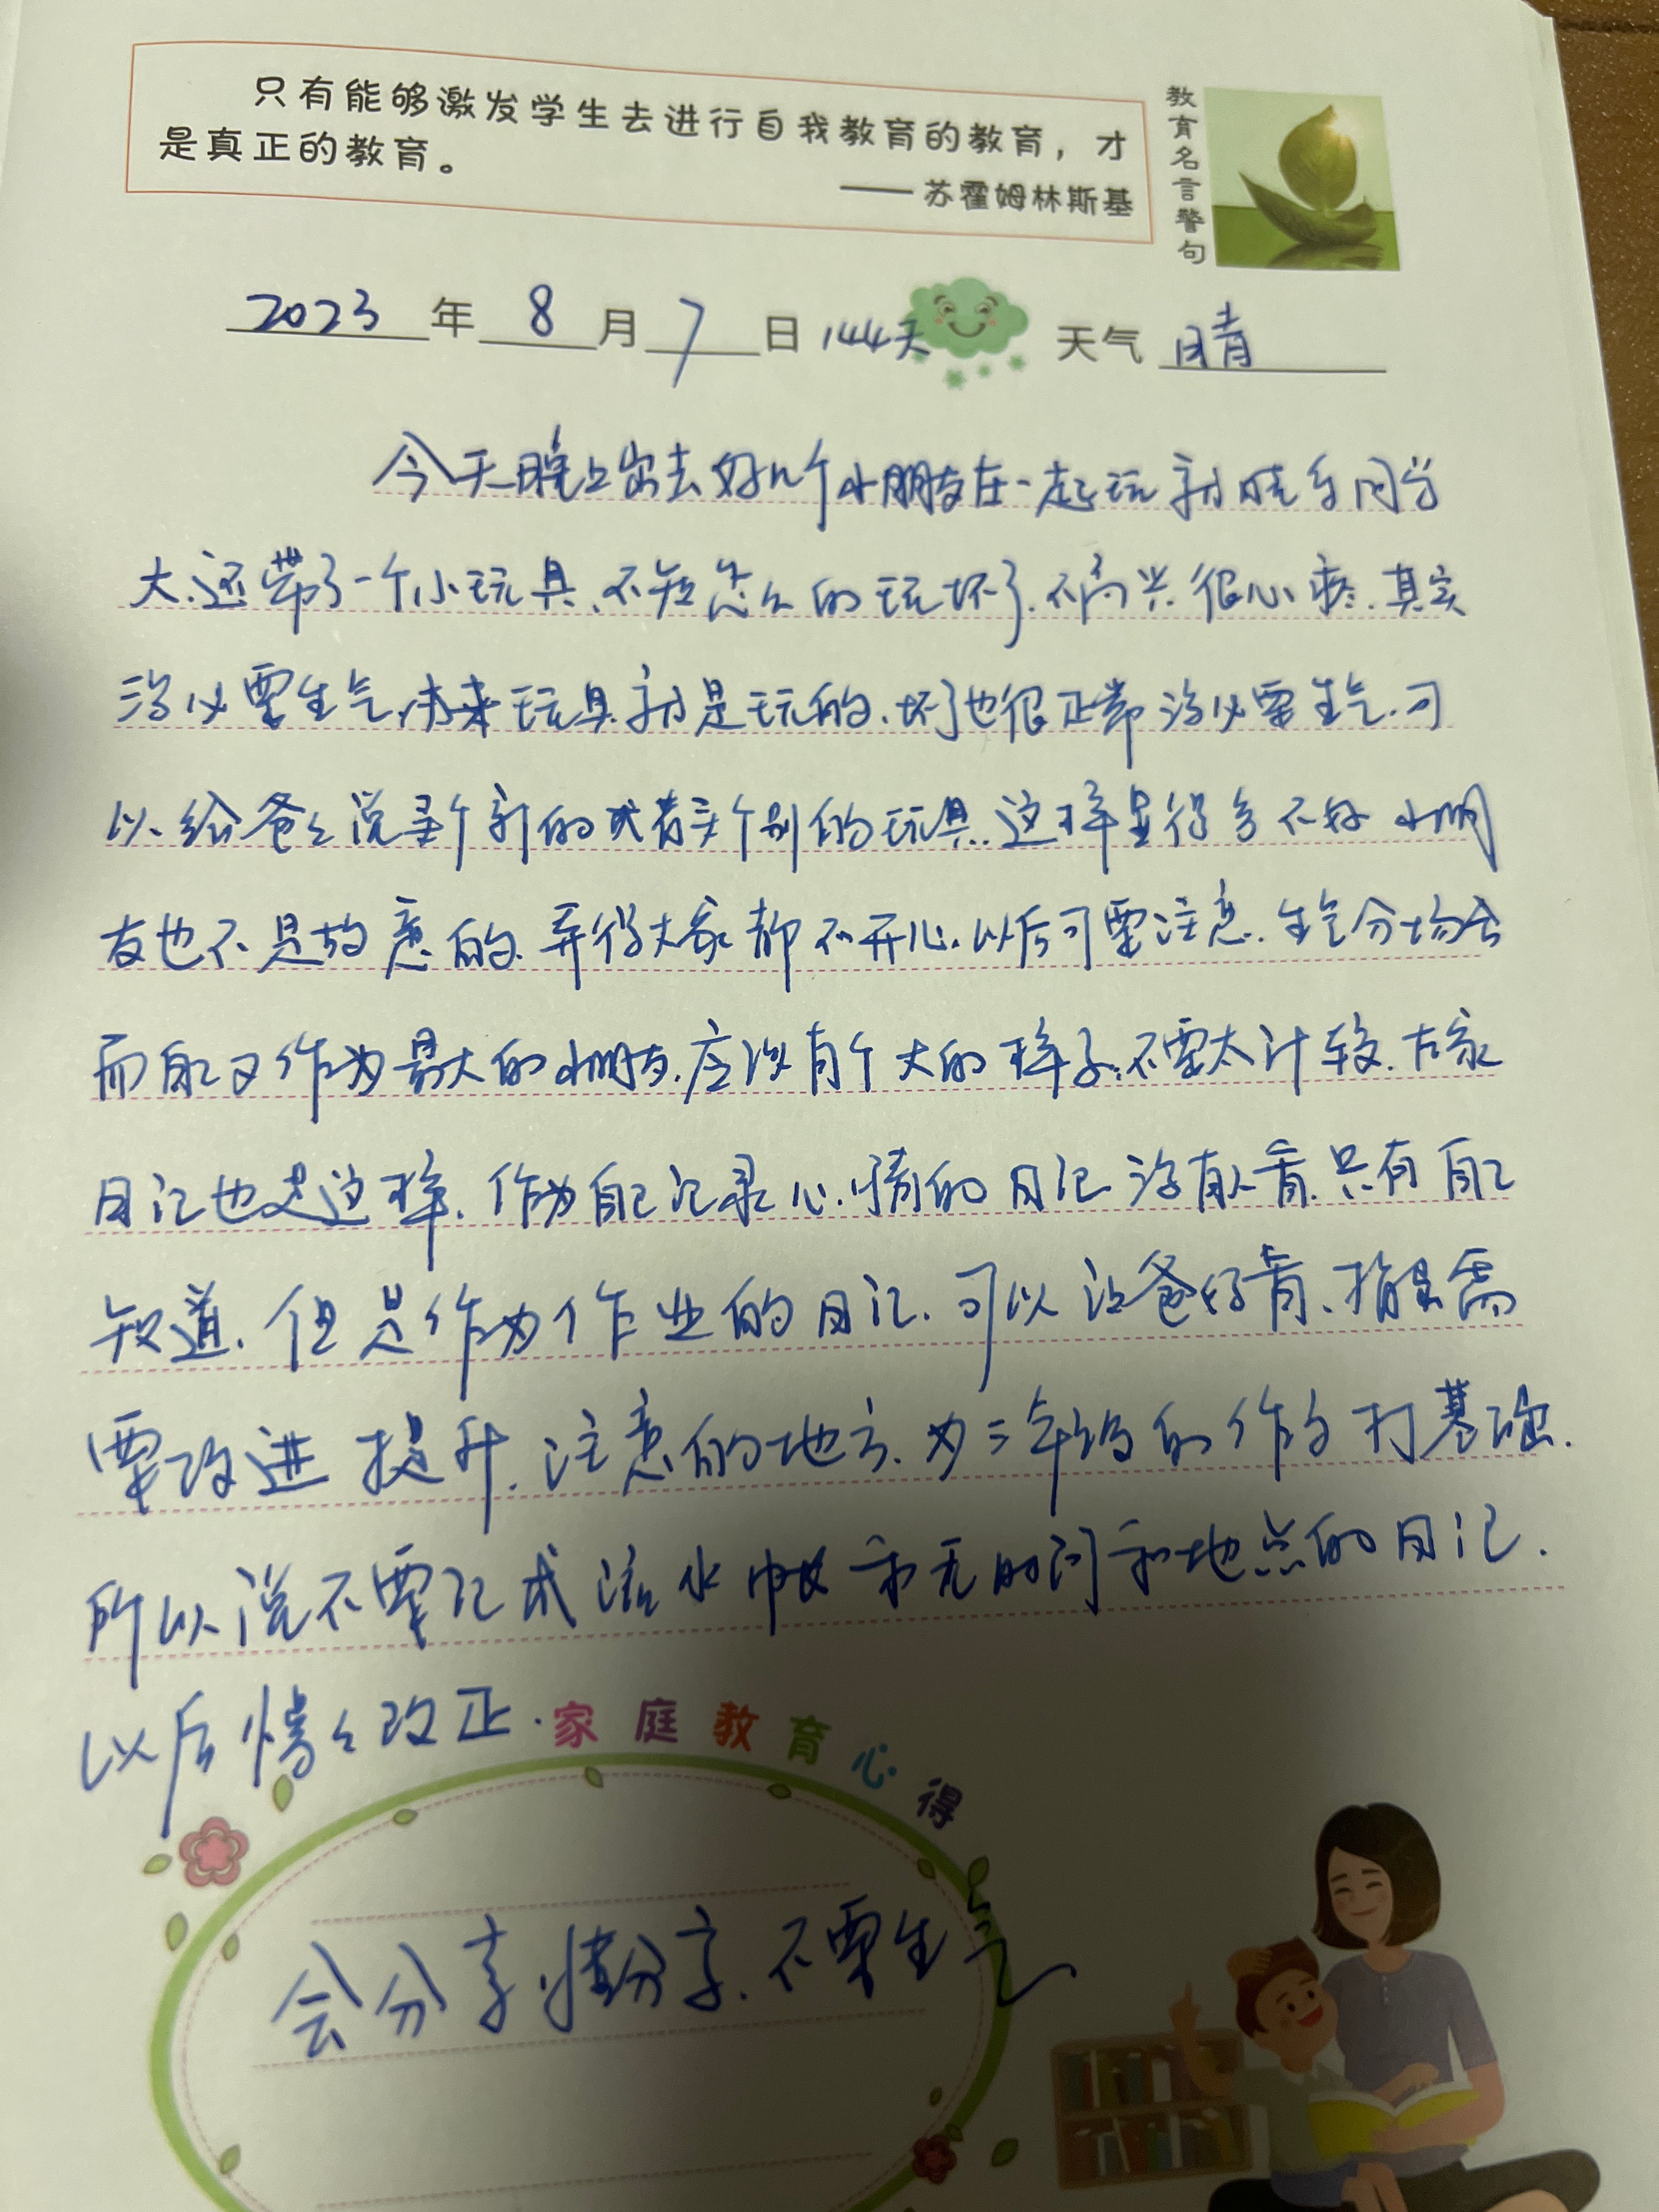 只有能够激发学生去进行自我教育的教育，才
是真正的教育。
——苏霍姆林斯基
教育名言警句
2023年8月7日 144天 天气 晴
今天晚上出去好几个小朋友在一起玩就晓东同学
大.还带了一个小玩具、不知怎么的玩坏了.不高兴.很心疼.其实
没必要生气.本来玩具就是玩的.坏了也很正常没必要生气.可
以给爸爸说买个新的或者买个别的玩具.这样显得多不好 小朋
友也不是故意的.弄得大家都不开心.以后可要注意.生气分场合
而自己又作为最大的小朋友.应该有个大的样子.不要太计较.大家
日记也是这样.作为自己记录心情的日记没有人看.只有自己
知道.但是作为作业的日记.可以让爸爸看.指导需
要改进提升.注意的地方.为三年级的作文打基础.
所以说不要记成流水帐和无时间和地点的日记.
以后慢慢改正.
家庭教育心得
会分享.懂分享.不要生气